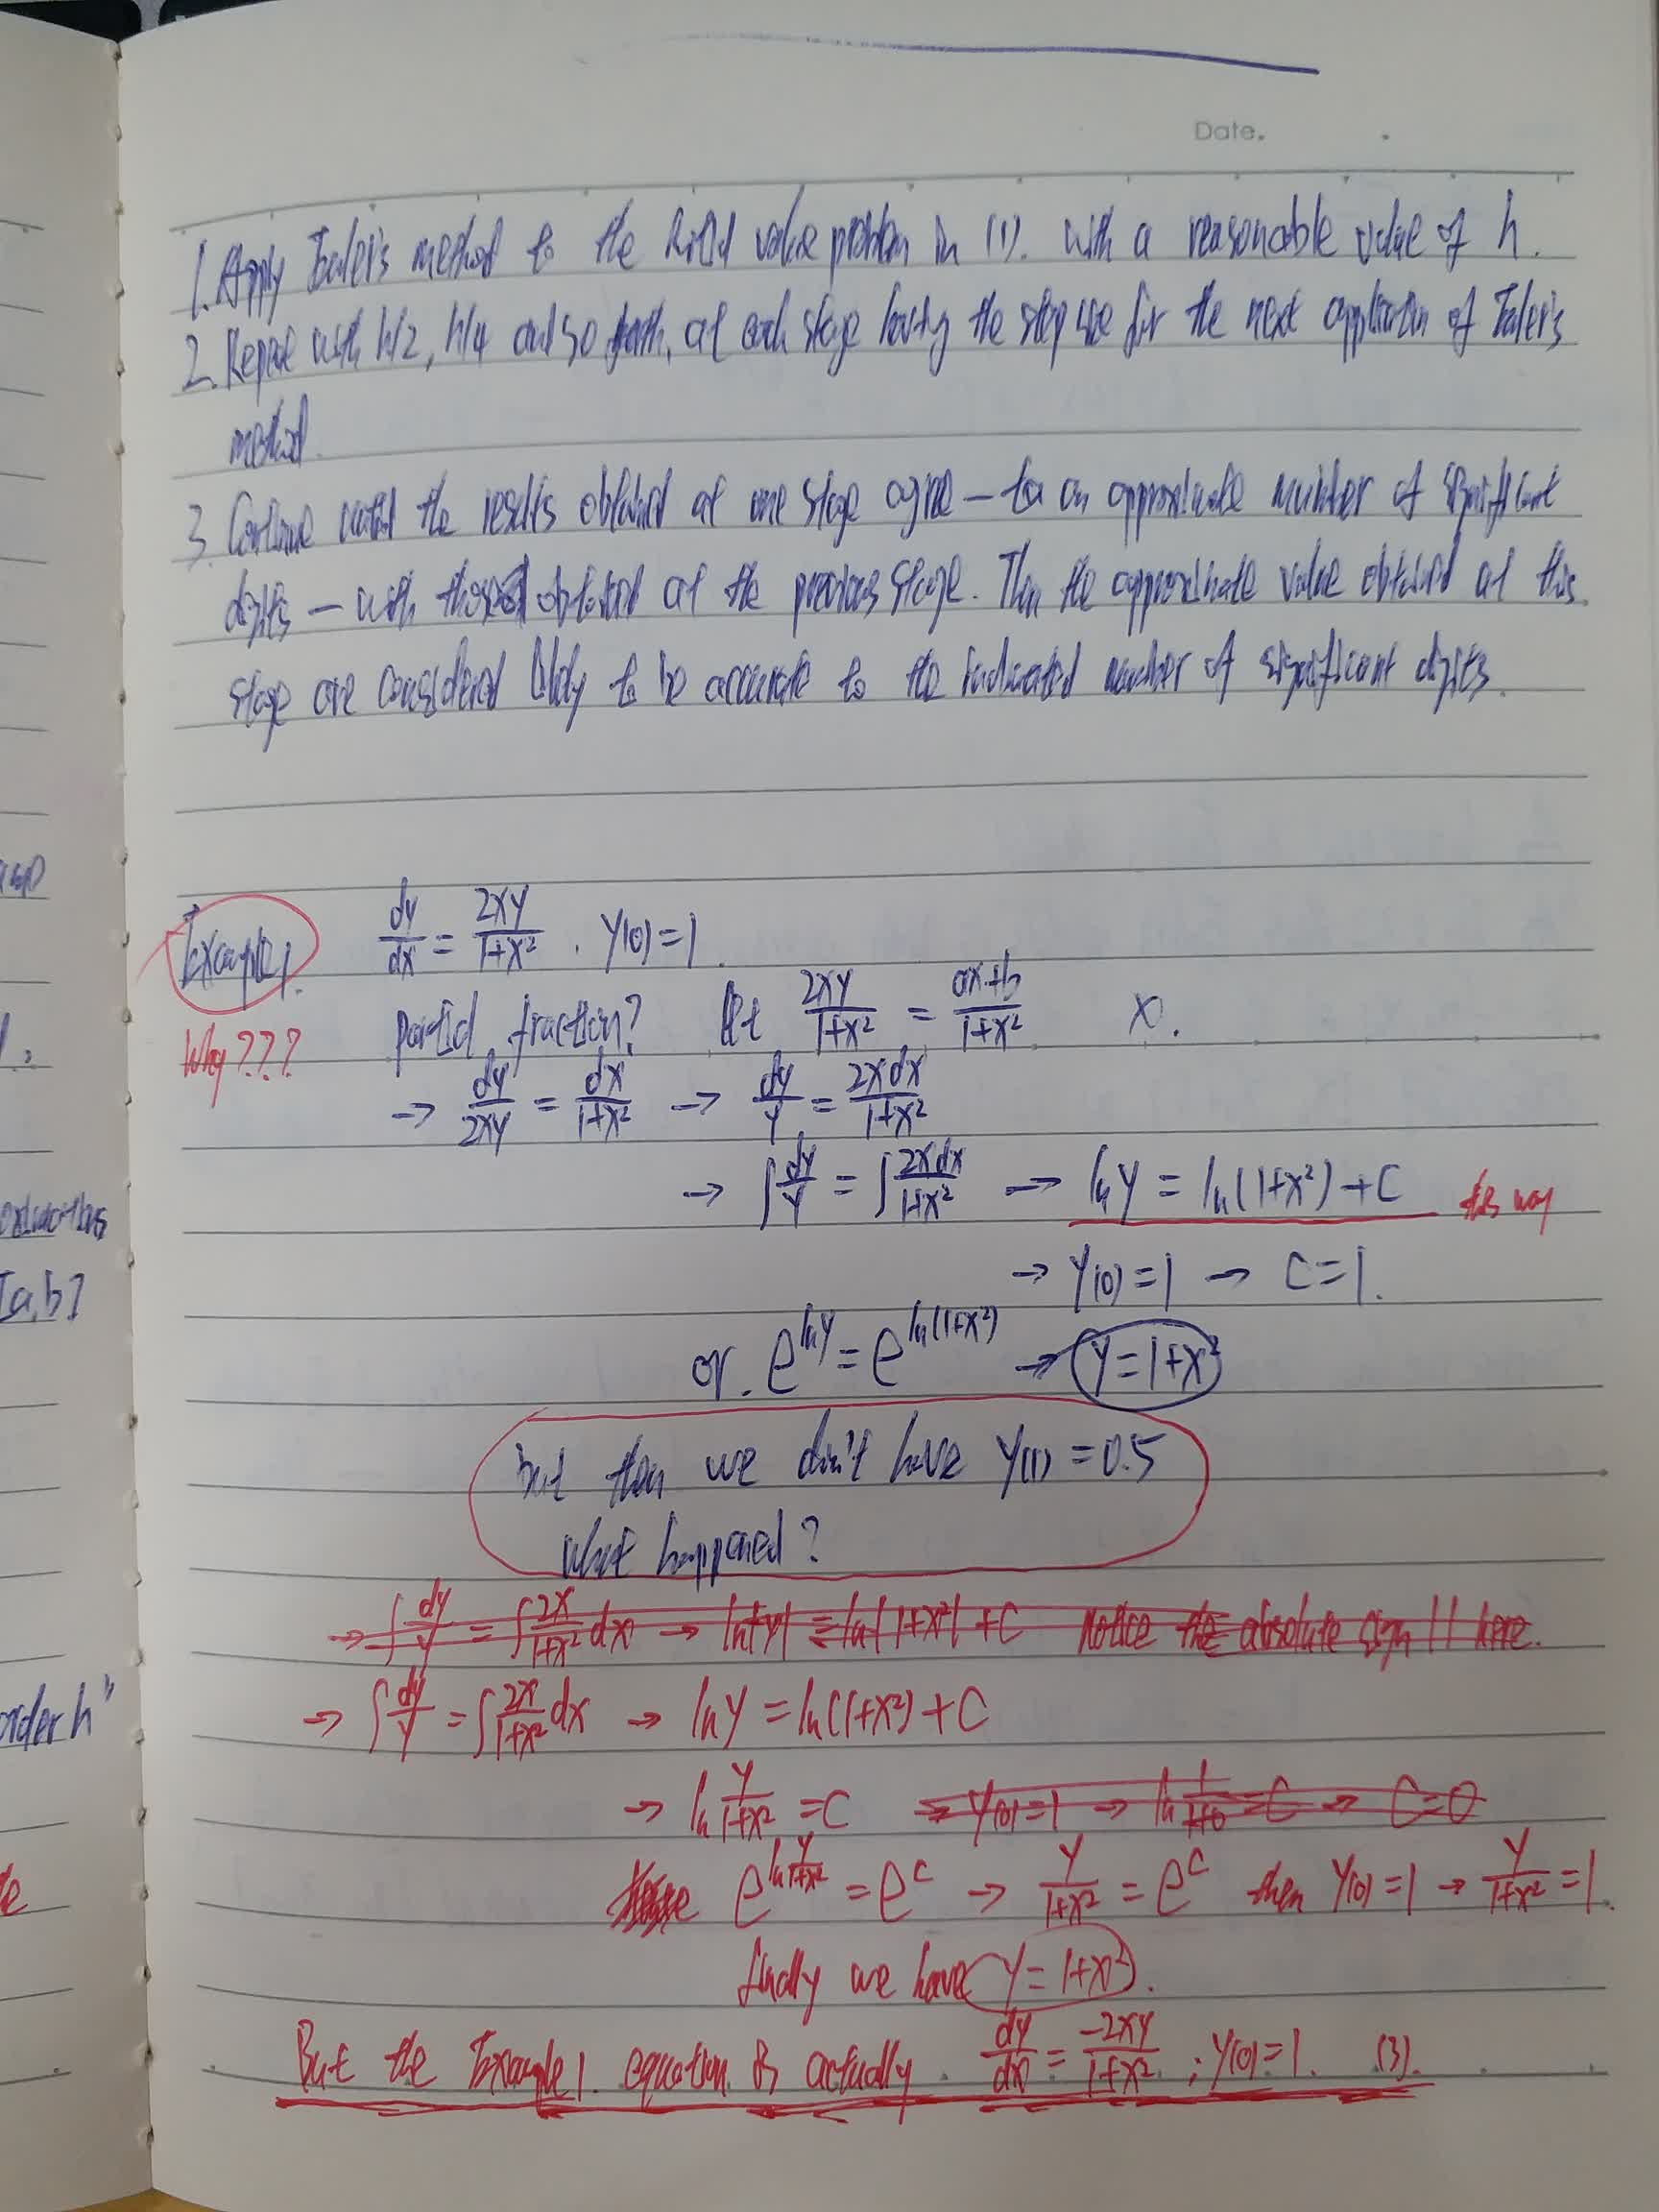 Date.
1. Apply Euler's method to the initial value problem in (1). with a reasonable value of h.
2. Repeat with h/2, h/4 and so forth, at each stage having the step size for the next application of Euler's
method.
3. Continue until the results obtained at one stage agree — to an approximate number of significant
digits — with those obtained at the previous stage. Then the approximate value obtained at this
stage are considered likely to be accurate to the indicated number of significant digits.
Example 1. dy/dx = 2xy/(1+x²) . y(0)=1.
Why??? partial fraction? let 2xy/(1+x²) = (ax+b)/(1+x²) x.
→ dy/2xy = dx/(1+x²) → dy/y = 2xdx/(1+x²)
→ ∫dy/y = ∫2xdx/(1+x²) → ln y = ln(1+x²)+C this way
→ y(0)=1 → C=1.
or. e^(ln y) = e^(ln(1+x²)) → y=1+x²
But then we don't have y(1)=0.5
what happened?
→ ∫dy/y = ∫2x/(1+x²) dx → ln|y| = ln|1+x²| + C Notice the absolute sign || here.
→ ∫dy/y = ∫2x/(1+x²) dx → ln y = ln(1+x²)+C
→ ln y/(1+x²) = C → y(0)=1 → ln 1/(1+0) = C → C=0
e^(ln y/(1+x²)) = e^C → y/(1+x²) = e^C then y(0)=1 → y/(1+x²) = 1.
finally we have y=1+x².
But the Example 1. equation is actually. dy/dx = -2xy/(1+x²) ; y(0)=1. (3).
[a,b]
order h"